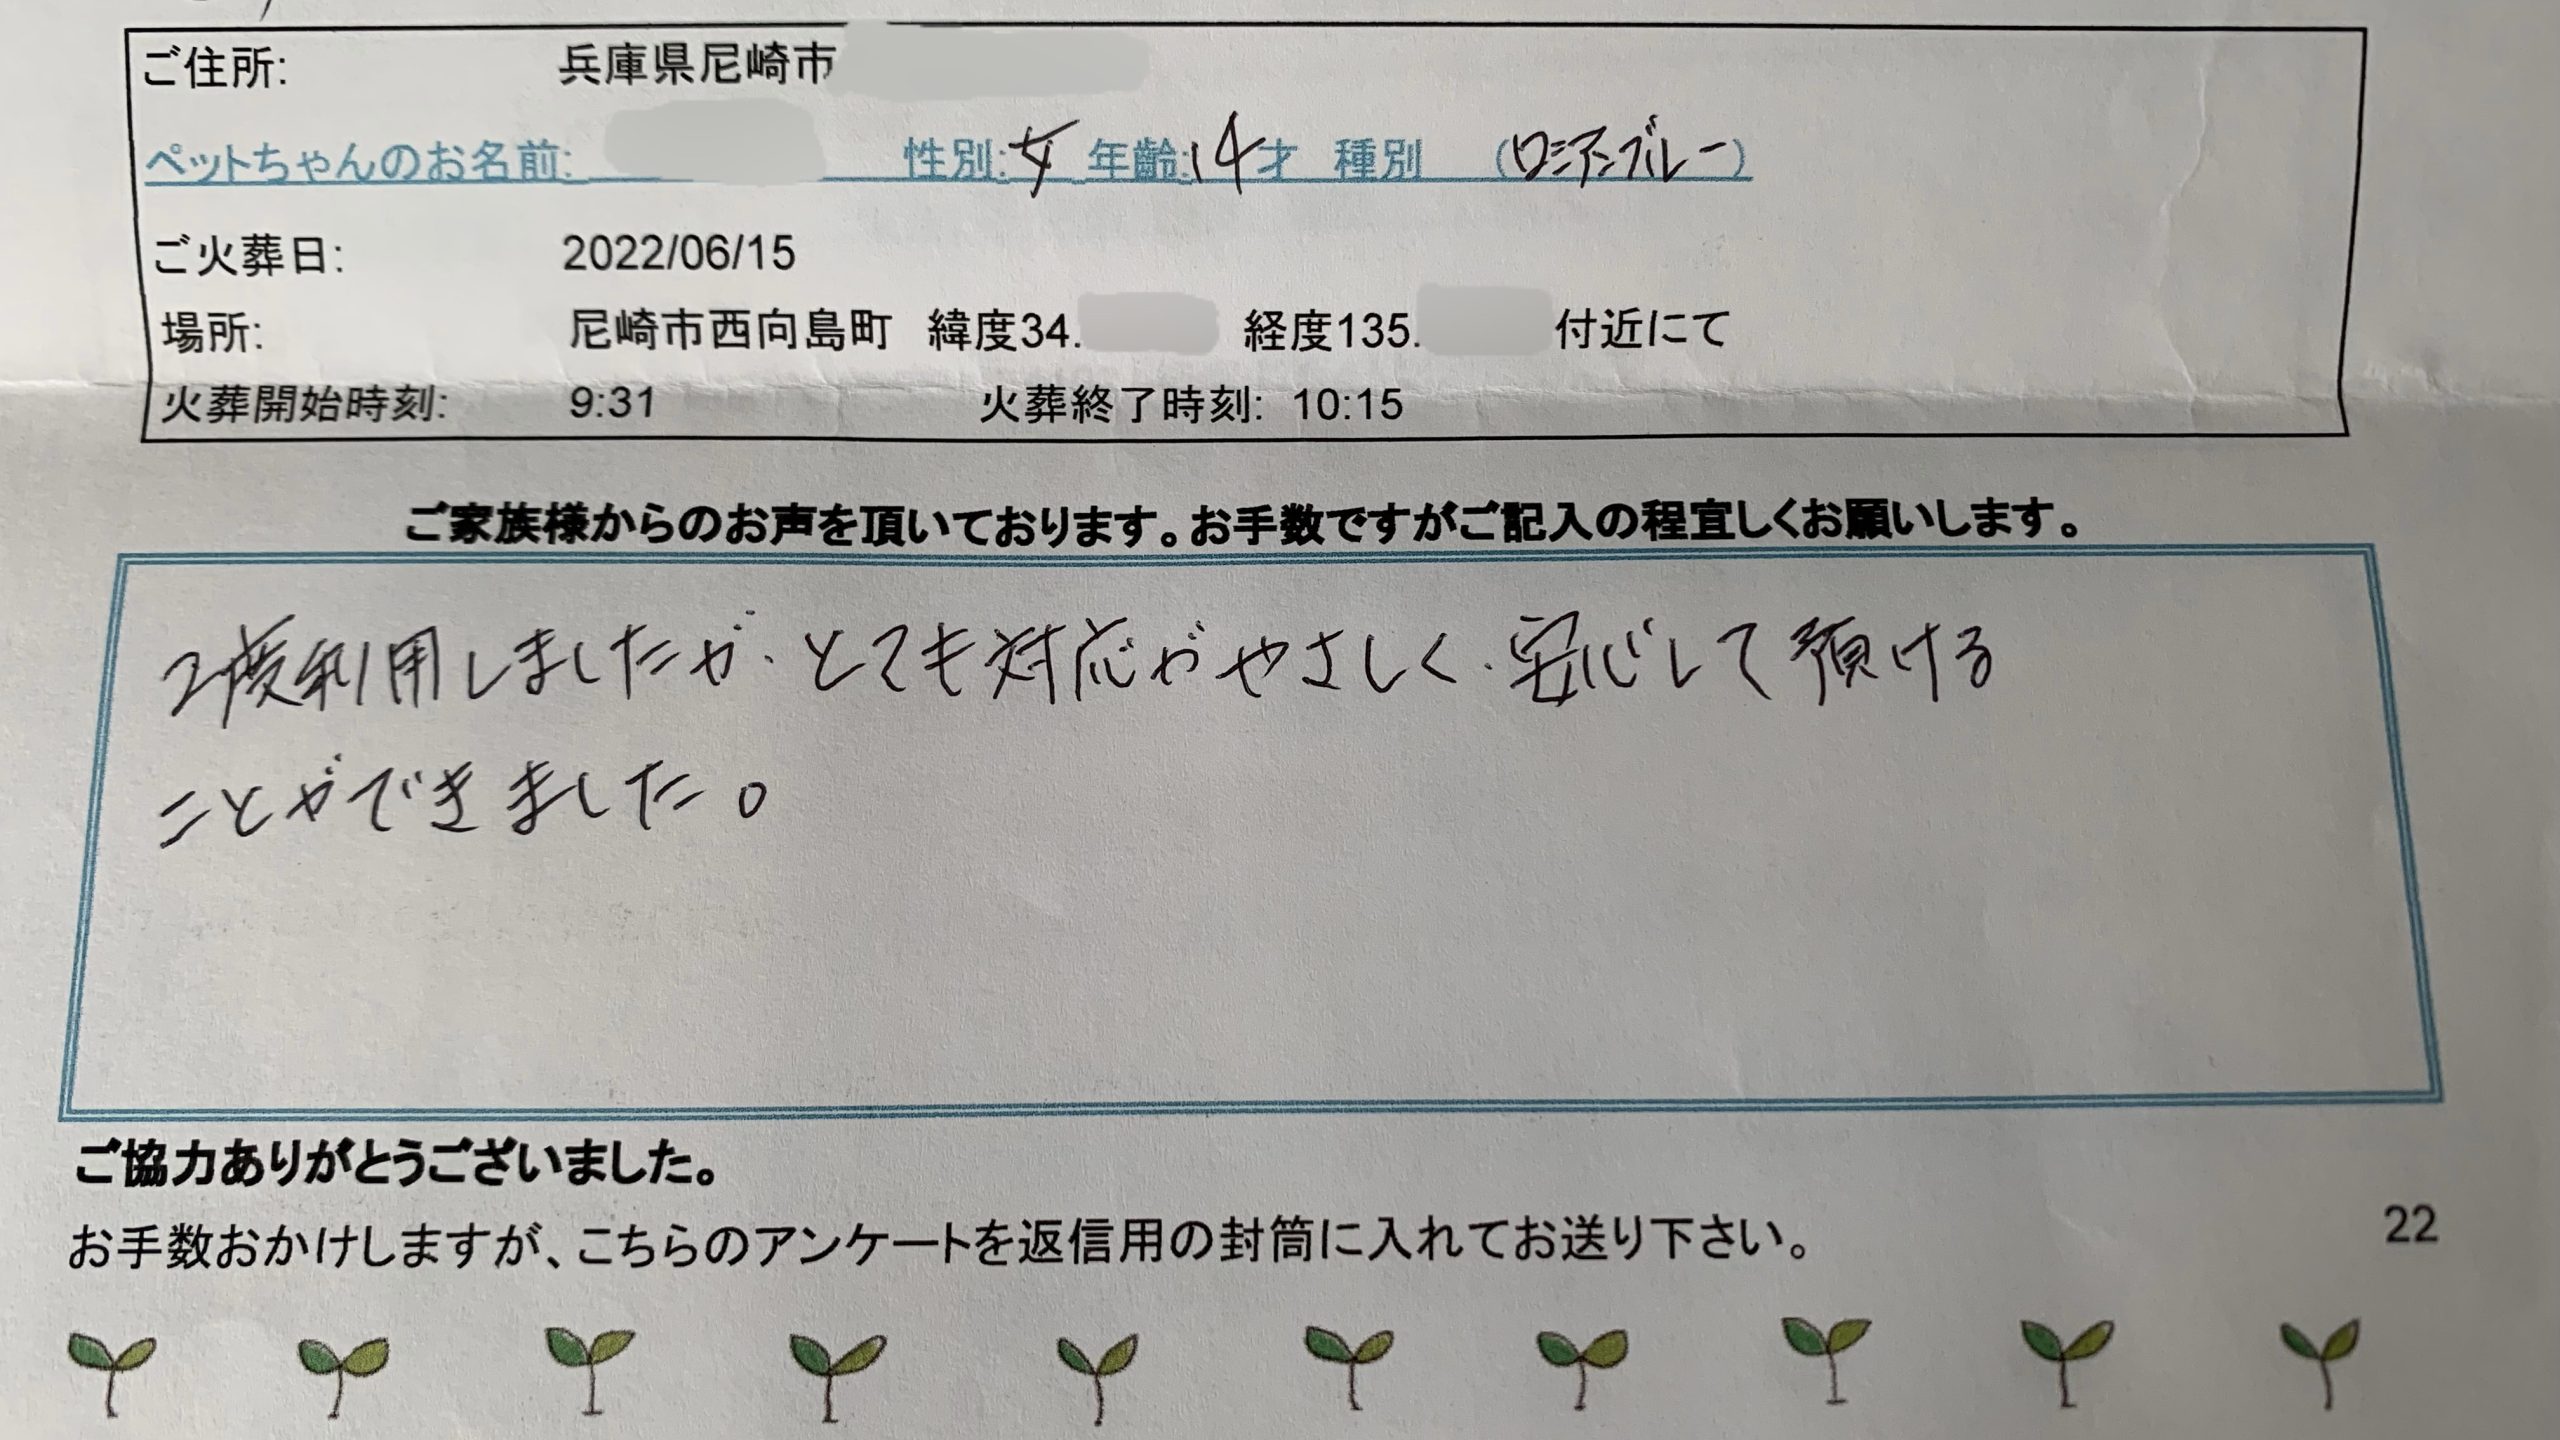 ご住所: 兵庫県尼崎市
ペットちゃんのお名前: 性別:女 年齢:14才 種別 (ロシアンブルー)
ご火葬日: 2022/06/15
場所: 尼崎市西向島町 緯度34. 経度135. 付近にて
火葬開始時刻: 9:31 火葬終了時刻: 10:15
ご家族様からのお声を頂いております。お手数ですがご記入の程宜しくお願いします。
2度利用しましたが、とても対応がやさしく、安心して預ける
ことができました。
ご協力ありがとうございました。
お手数おかけしますが、こちらのアンケートを返信用の封筒に入れてお送り下さい。 22